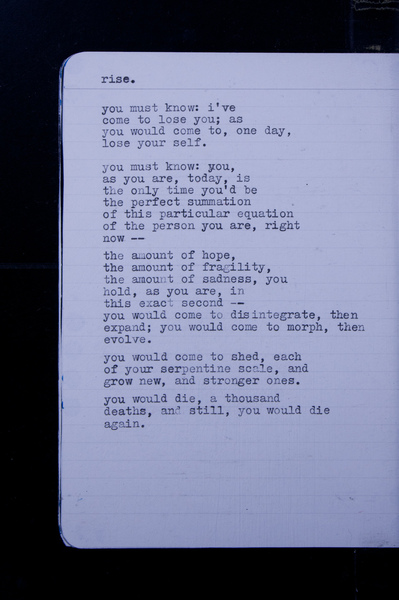 rise.
you must know: i've
come to lose you; as
you would come to, one day,
lose your self.
you must know: you,
as you are, today, is
the only time you'd be
the perfect summation
of this particular equation
of the person you are, right
now --
the amount of hope,
the amount of fragility,
the amount of sadness, you
hold, as you are, in
this exact second --
you would come to disintegrate, then
expand; you would come to morph, then
evolve.
you would come to shed, each
of your serpentine scale, and
grow new, and stronger ones.
you would die, a thousand
deaths, and still, you would die
again.